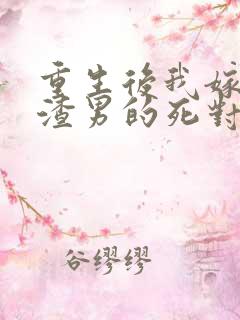 重生後我嫁
渣男的死對
谷缪缪